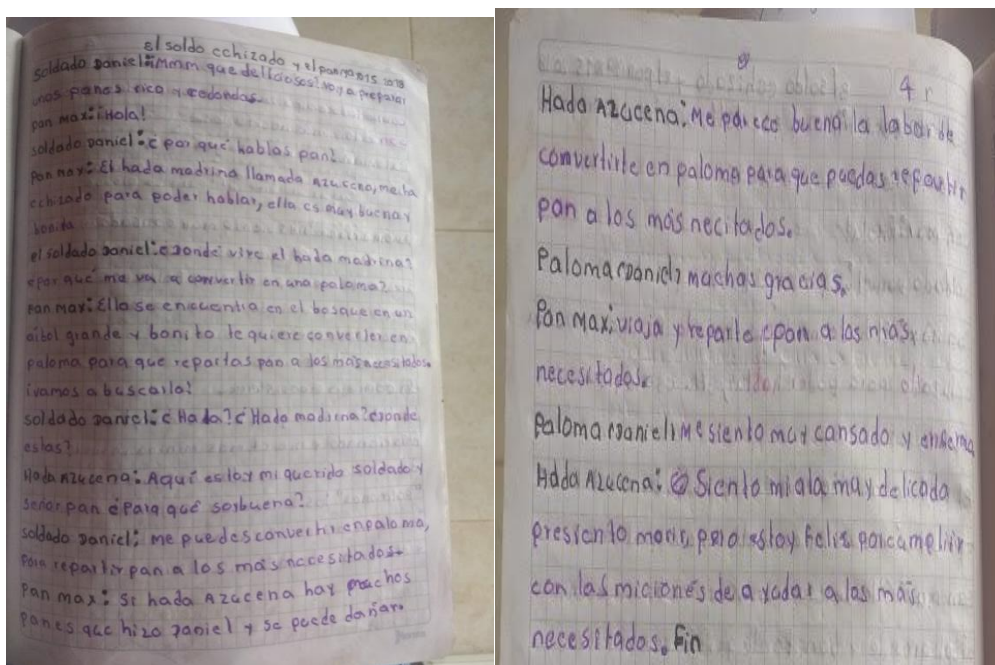 El soldo cchizado y el pan
soldado Daniel: Mmm que deliciosos! voy a preparar
unos panes rico y redondas.
pan max: ¡Hola!
soldado Daniel: ¿por qué hablas pan?
Pan max: El hada madrina llamada Azuceno, me ha
cchizado para poder hablar, ella es muy buena y
bonita
el soldado Daniel: ¿Donde vive el hada madrina?
¿por qué me va a convertir en una paloma?
Pan max: Ella se encuentra en el bosque en un
arbol grande y bonito te quiere converler en
paloma para que repartas pan a los más necesitados.
¡vamos a buscarlo!
soldado Daniel: ¿Hada? ¿Hada madrina? ¿Donde
estas?
Hada Azucena: Aquí estoy mi querido soldado y
señor pan ¿Para qué soy buena?
soldado Daniel: me puedes convertir en paloma,
Para repartir pan a los más necesitados.
Pan max: Si hada Azucena hay muchos
panes que hizo Daniel y se puede dañar.
4
Hada Azucena: Me parece buena la labor de
convertirte en paloma para que puedas repartir
pan a los más necitados.
Paloma Daniel: muchas gracias.
Pan Max: viaja y reparte pan a los más
necesitados.
Paloma Daniel: me siento muy cansado y enferma
Hada Azucena: Siento mi ala muy delicada
presiento morir, pero estoy feliz por cumplir
con las miciones de ayudar a las más
necesitados. Fin